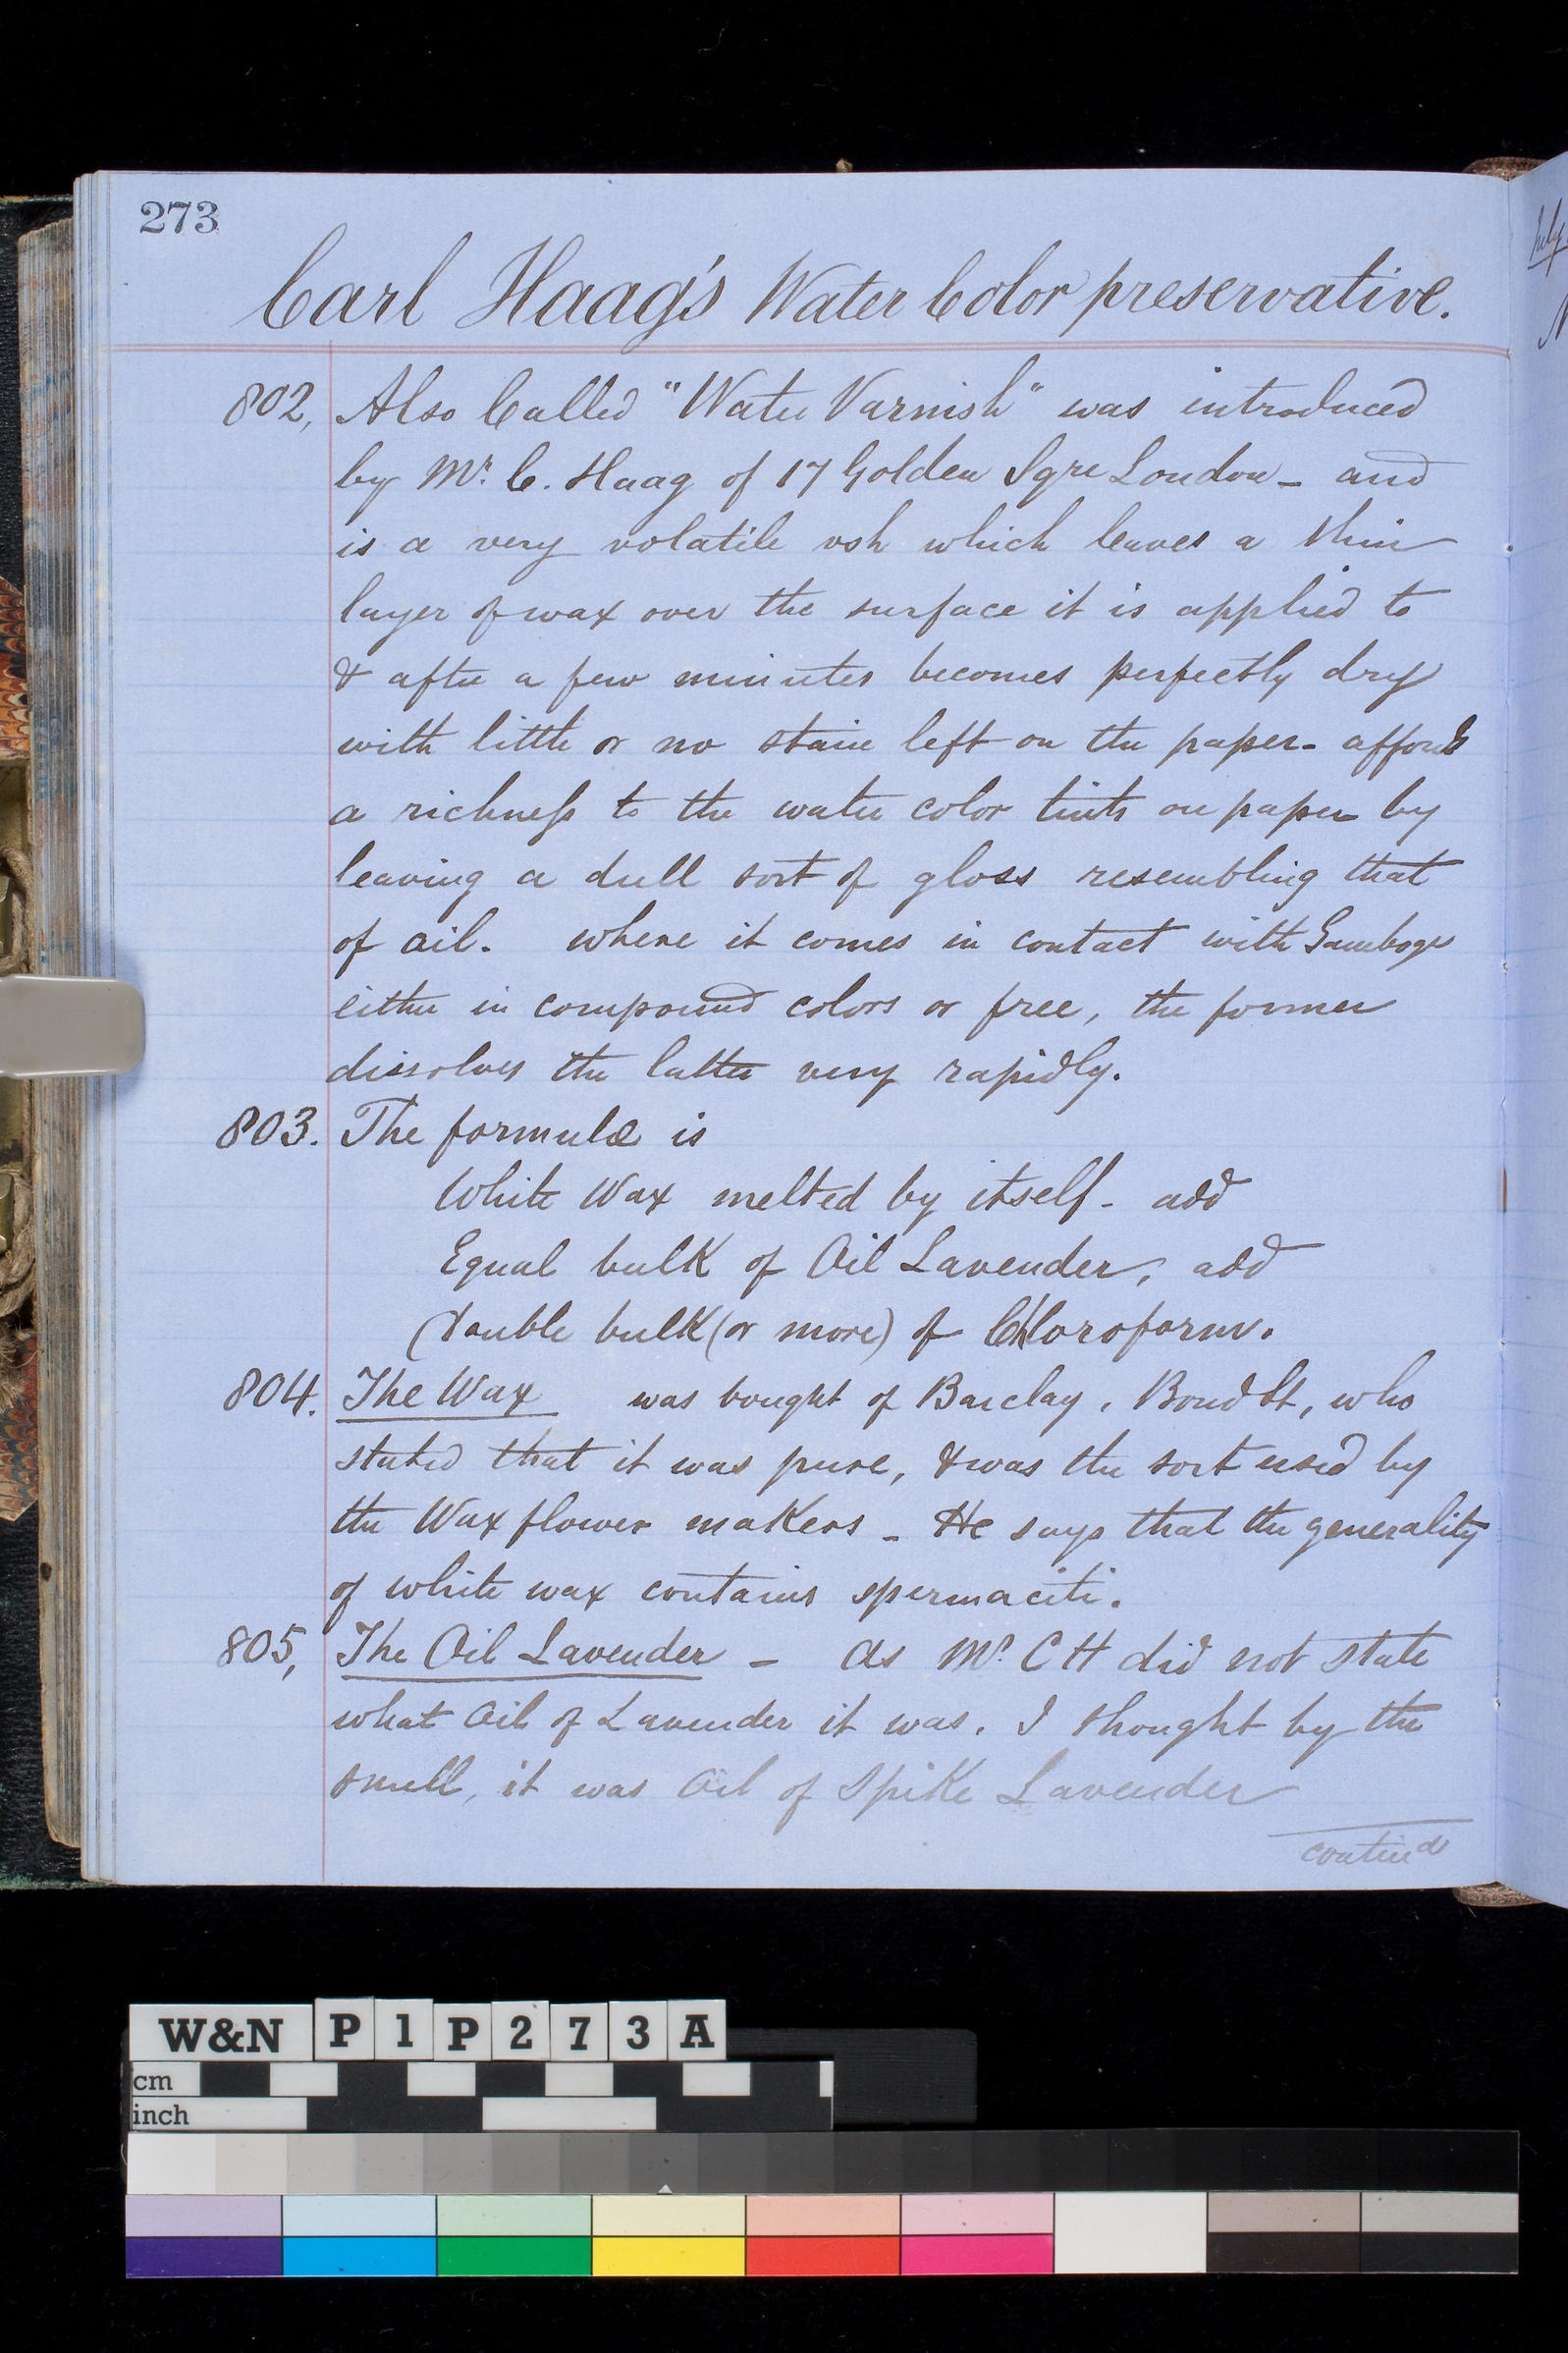 273
Carl Haag's Water Color preservative.
802, Also Called "Water Varnish" was introduced
by Mr. C. Haag of 17 Golden Sqre London - and
is a very volatile vsh which leaves a thin
layer of wax over the surface it is applied to
& after a few minutes becomes perfectly dry
with little or no stain left on the paper - affords
a richness to the water color tints on paper by
leaving a dull sort of gloss resembling that
of oil. where it comes in contact with Gamboge
either in compound colors or free, the former
dissolves the latter very rapidly.
803. The formulæ is
White Wax melted by itself - add
Equal bulk of Oil Lavender, add
(double bulk (or more) of Chloroform.
804. The Wax was bought of Barclay, Bond St, who
stated that it was pure, & was the sort used by
the Wax flower makers - He says that the generality
of white wax contains spermaciti.
805, The Oil Lavender - As Mr. C H did not state
what Oil of Lavender it was. I thought by the
smell, it was Oil of Spike Lavender
contind
July
N
W&N P1P273A
cm
inch